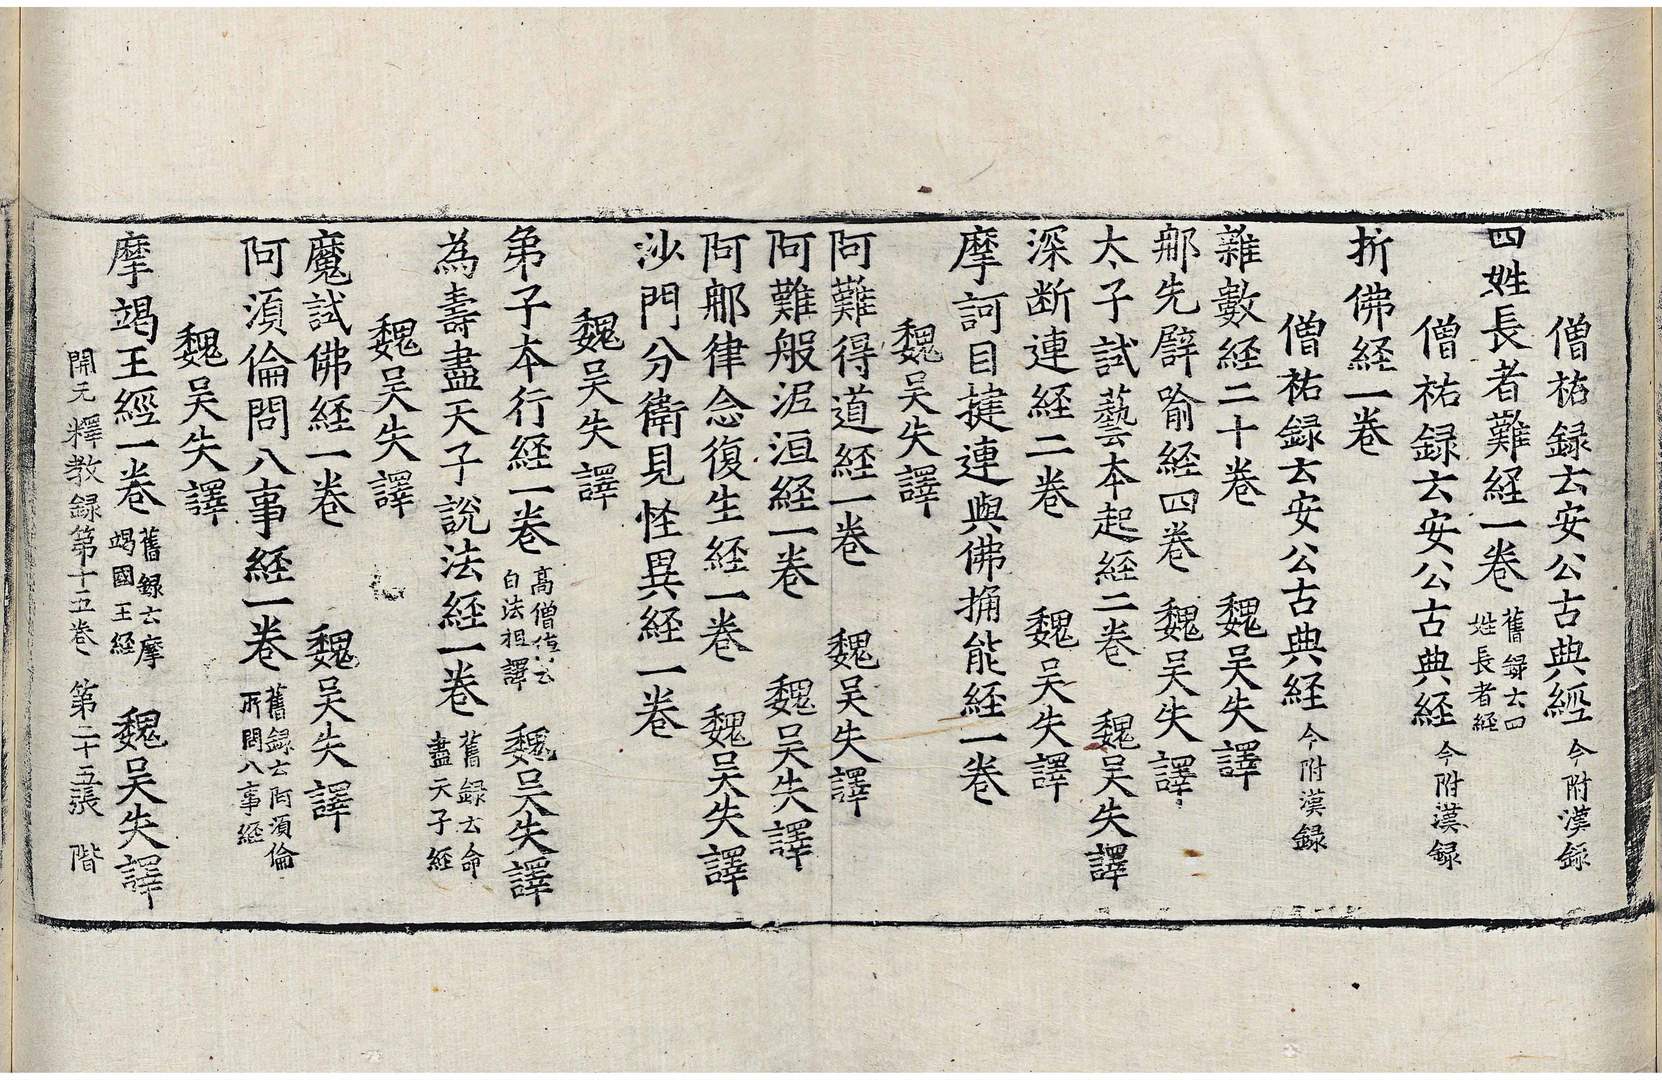 僧祐録云安公古典經今附漢録
四姓長者難経一卷舊録云四姓長者経
僧祐録云安公古典経今附漢録
折佛経一卷
僧祐録云安公古典経今附漢録
雜數経二十卷 魏吴失譯
那先譬喻経四卷 魏吴失譯
太子試藝本起経二卷 魏吴失譯
深断連経二卷 魏吴失譯
摩訶目揵連與佛捔能経一卷
魏吴失譯
阿難得道経一卷 魏吴失譯
阿難般泥洹経一卷 魏吴失譯
阿那律念復生経一卷 魏吴失譯
沙門分衛見怪異経一卷
魏吴失譯
弟子本行経一卷高僧傳云白法祖譯 魏吴失譯
為壽盡天子説法経一卷舊録云命盡天子経
魏吴失譯
魔試佛経一卷 魏吴失譯
阿湏倫問八事経一卷舊録云阿湏倫所問八事経
魏吴失譯
摩竭王經一卷舊録云摩竭國王経 魏吴失譯
開元釋教録第十五卷 第二十五張 階